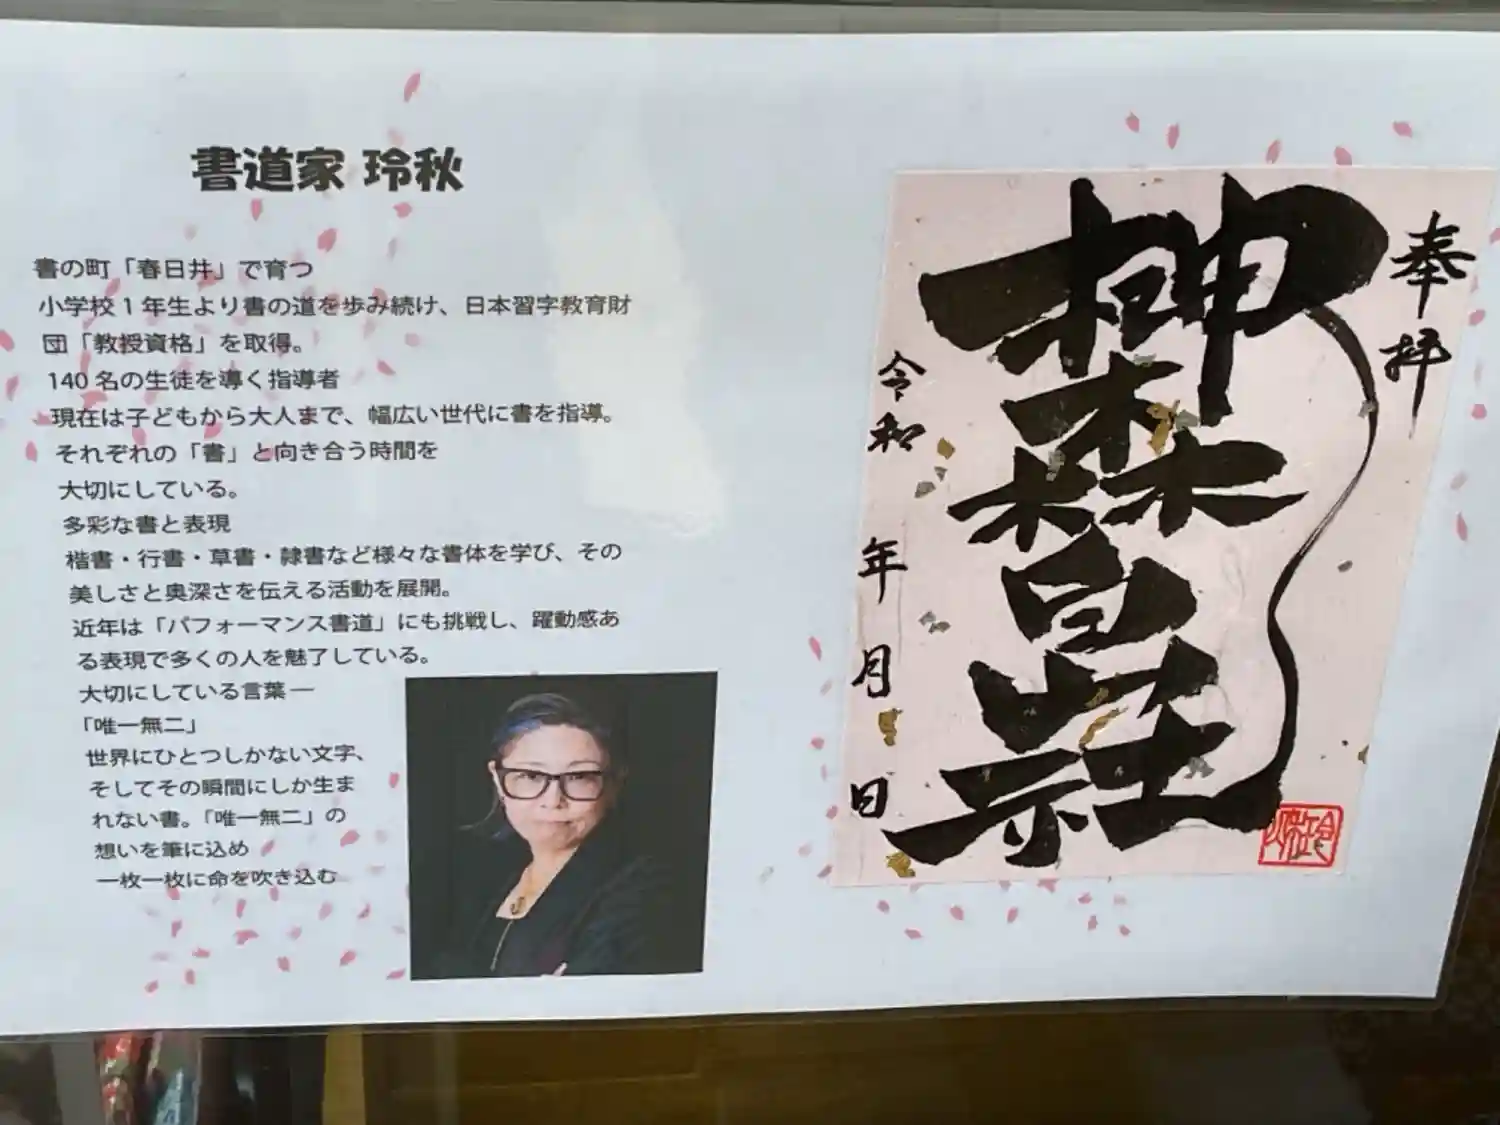 書道家 玲秋
書の町「春日井」で育つ
小学校1年生より書の道を歩み続け、日本習字教育財
団「教授資格」を取得。
140名の生徒を導く指導者
現在は子どもから大人まで、幅広い世代に書を指導。
それぞれの「書」と向き合う時間を
大切にしている。
多彩な書と表現
楷書・行書・草書・隷書など様々な書体を学び、その
美しさと奥深さを伝える活動を展開。
近年は「パフォーマンス書道」にも挑戦し、躍動感あ
る表現で多くの人を魅了している。
大切にしている言葉―
「唯一無二」
世界にひとつしかない文字、
そしてその瞬間にしか生ま
れない書。「唯一無二」の
想いを筆に込め
一枚一枚に命を吹き込む
奉拝
神社
令和 年 月 日
玲秋